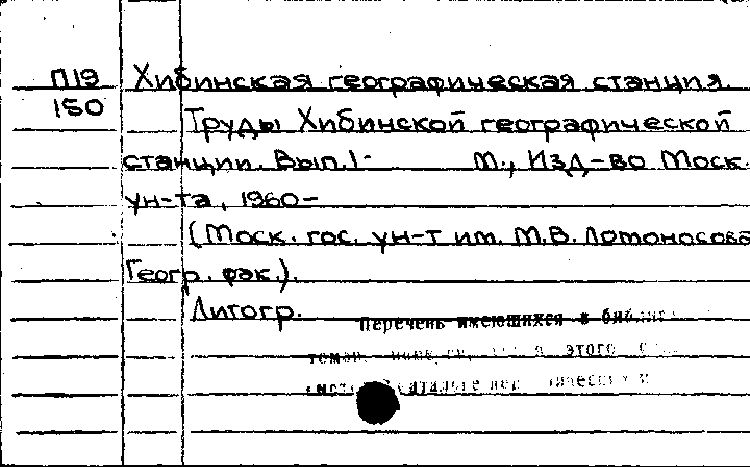 П19 Хибинская географическая станция.
150 Труды Хибинской географической
станции. Вып.1- М., Изд-во Моск.
ун-та, 1960-
(Моск. гос. ун-т им. М.В. Ломоносова
Геогр. фак.).
Литогр.
Перечень имеющихся в
этого
каталоге